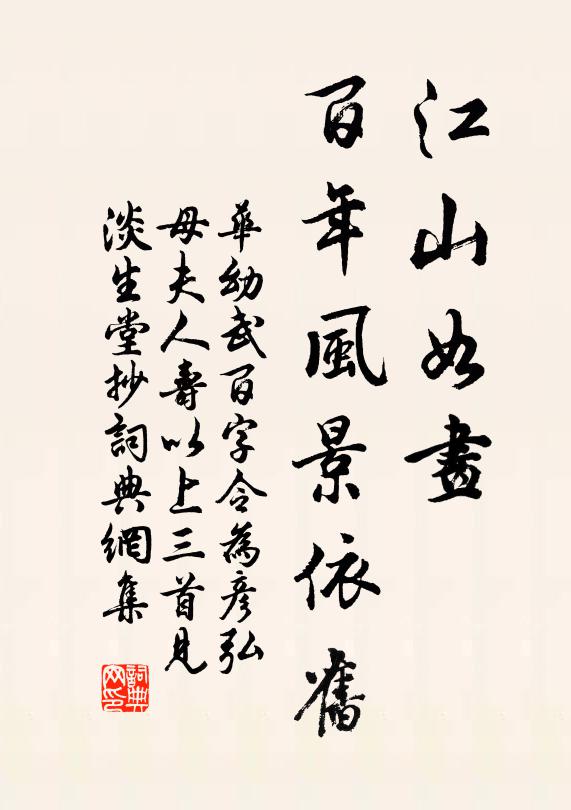 江山如畫
百年風景依舊
華幼武百字令為彥弘
母夫人壽以上三首見
淡生堂抄詞典網集
詞典網印